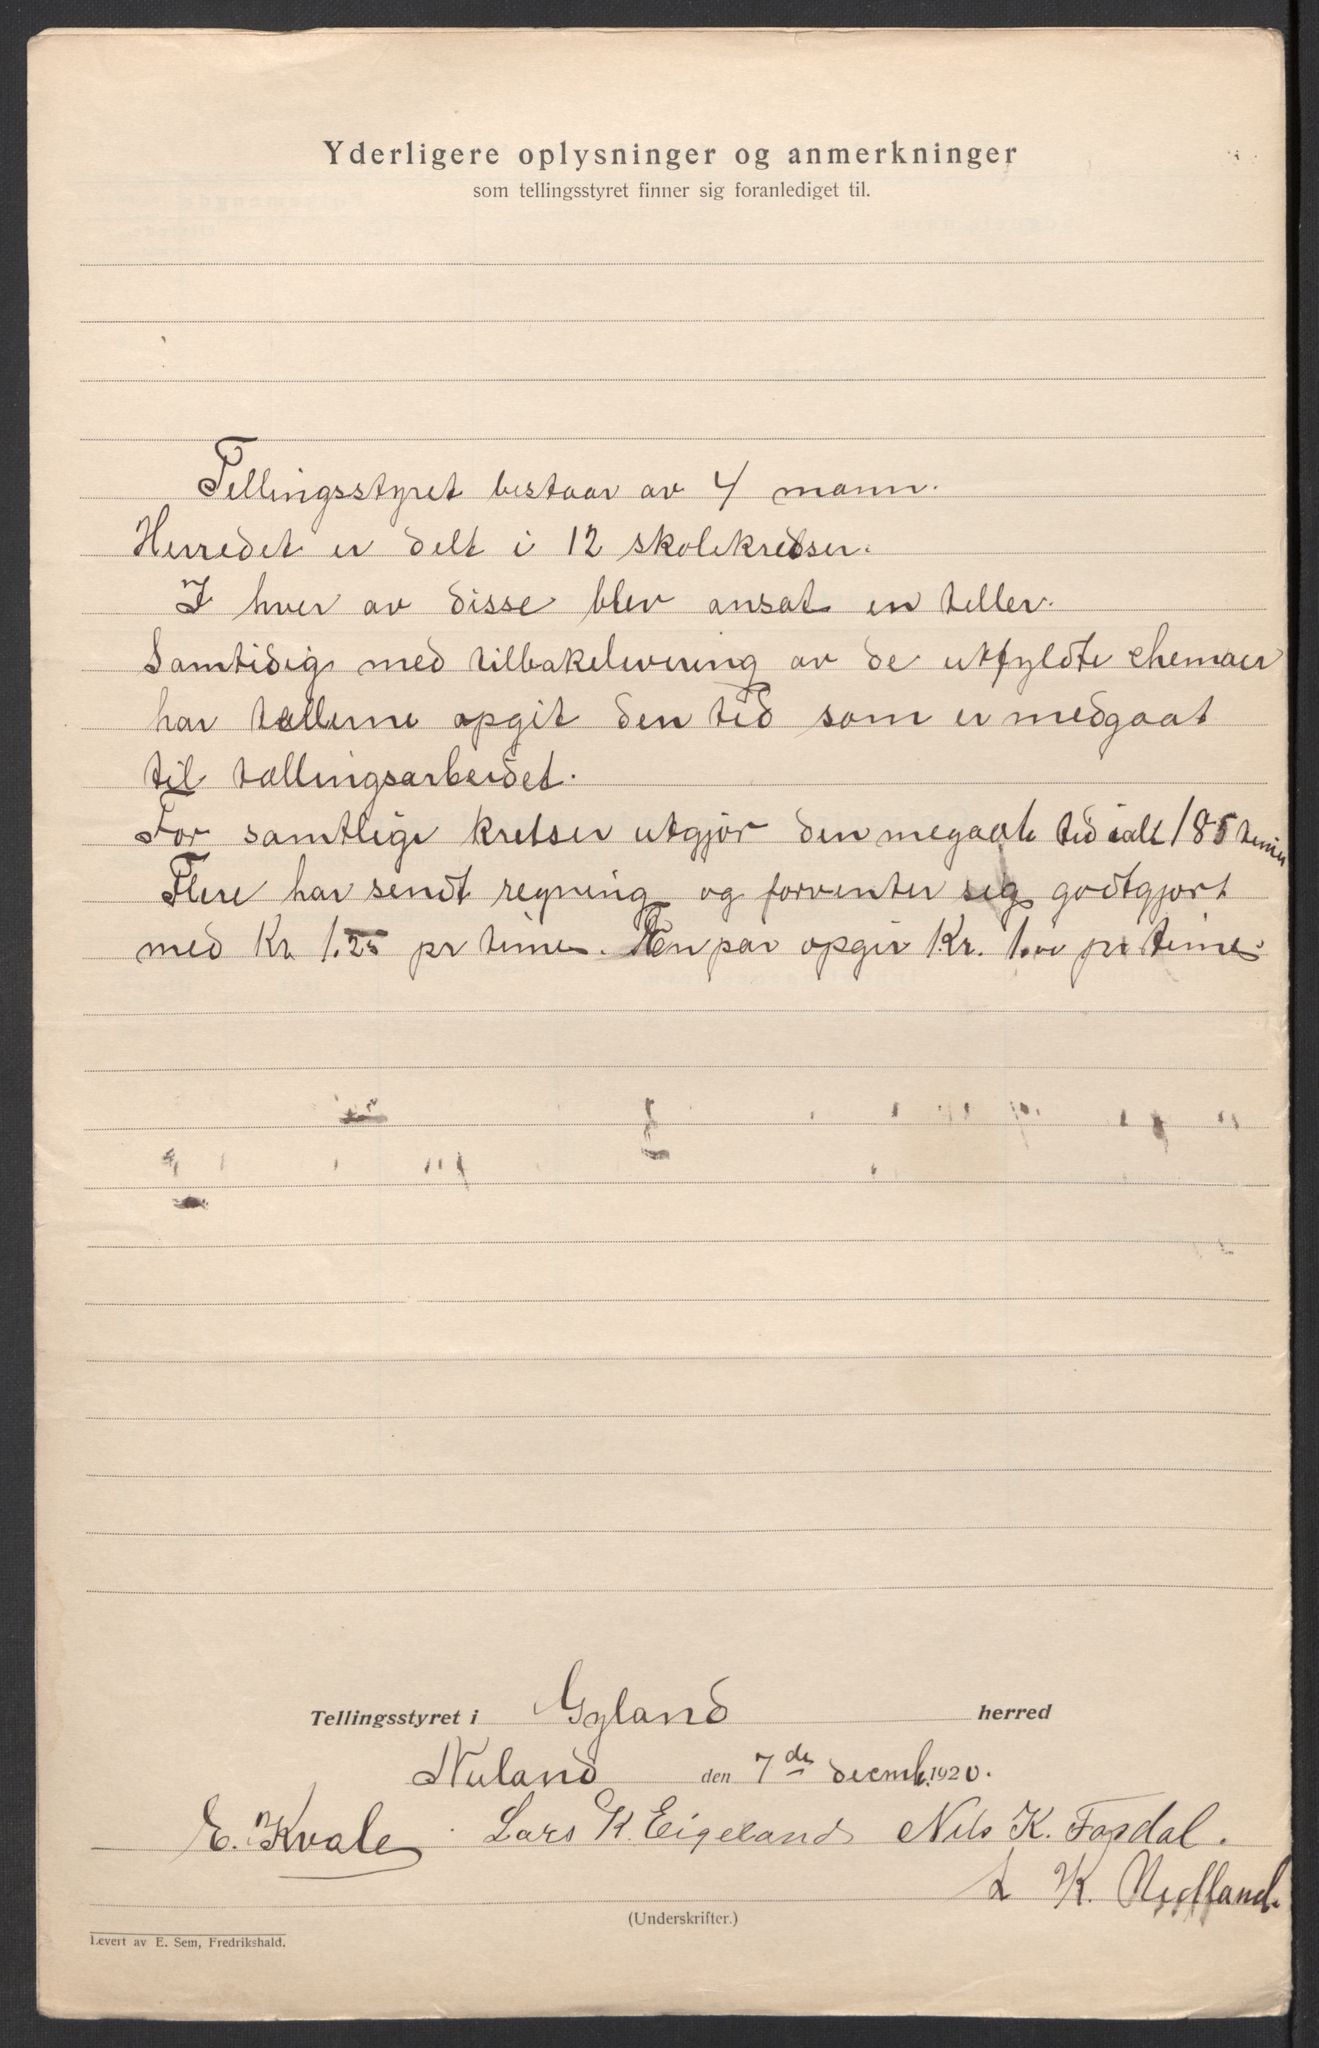 Yderligere oplysninger og anmerkninger
som tellingsstyret finner sig foranlediget til.
Tellingsstyret bestaar av 4 mann.
Herredet er delt i 12 skolekredser.
I hver av disse blev ansat en teller.
Samtidig med tilbakelevering av de utfyldte chemaer
har tællerne opgit den tid som er medgaat
til tællingsarbeidet.
For samtlige kretser utgjør den megaate tid ialt 185 timer
Flere har sendt regning og forventer sig godtgjort
med Kr 1.25 pr time. En par opgir Kr. 1.00 pr time.
Tellingsstyret i Gyland herred
Nuland den 7de decemb. 1920.
E. Kvale. Lars K. Eigeland Nils K. Fogdal.
L K. Nedland.
(Underskrifter.)
Levert av E. Sem, Fredrikshald.